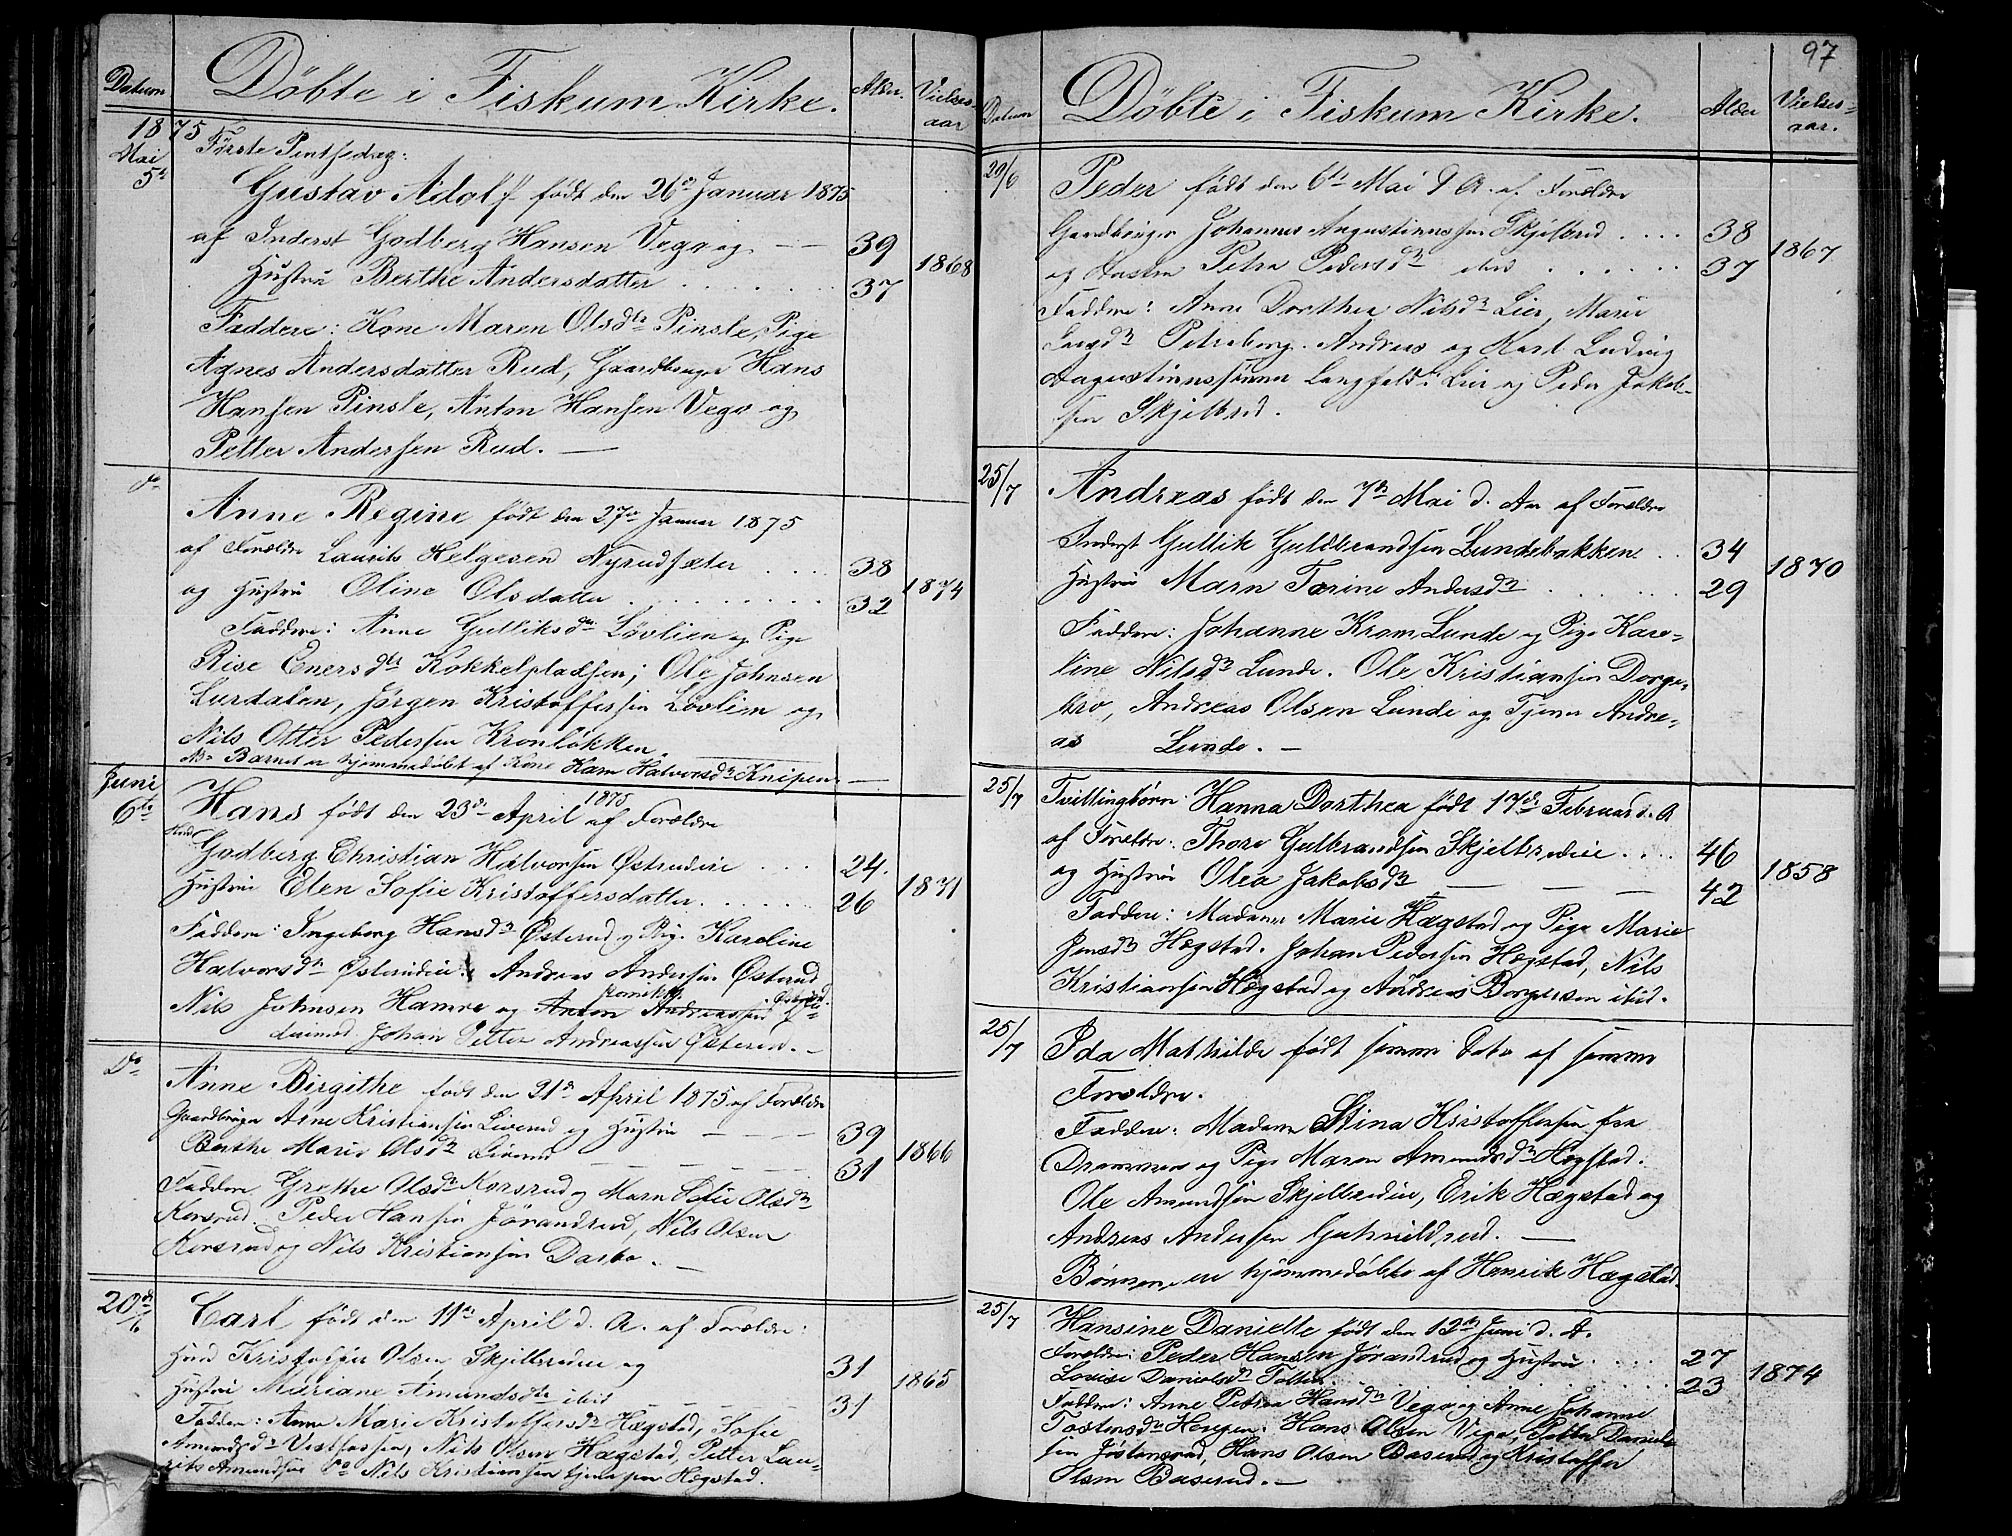 Datum
Döbte i Fiskum Kirke.
Alder.
Vielses-
aar
1875
Mai
5te
Förste Pintsedag:
Gustav Adolf födt den 26de Januar 1875
af Inderst Godberg Hansen Vego og
39
1868
Hustru Berthe Andersdatter
37
Faddere: Kone Maren Olsdtr Pinsle, Pige
Agnes Andersdatter Rud, Gaardbruger Hans
Hansen Pinsle, Anton Hansen Vego og
Petter Andersen Rud.
do
Anne Regine födt den 27de Januar 1875
af Forældre Laurits Helgesen Nyrudsæter
38
1874
og Hustru Oline Olsdatter
32
Faddere: Anne Gulliksdtr Lövlien og Pige
Rise Enersdtr Kokkelpladsen; Ole Johnsen
Lurdalen, Jörgen Kristoffersen Lövlien og
Nils Otter Pedersen Kronlökken.
NB. Barnet er hjemmedöbt af Kone Karn Halvorsdtr Knipen.
Juni
6te
Hans födt den 23de April 1875 af Forældre
Godberg Christian Halvorsen Östrudeie
24.
1871
Hustru Elen Sofie Kristoffersdatter
26
Faddere: Ingeborg Hansdtr Österud og Pig. Karoline
Halvorsdtr Österudeie. Andreas Andersen Österud
Nils Johnsen Hamre og Anton Andreassen
Johan Petter Andreassen Österud.
Do
Anne Birgithe födt den 21de April 1875 af Forældre
Gaardbruger Arne Kristiansen Liverud og Hustru
39
1866
Berthe Marie Olsdtr Liverud
31
Faddere Grethe Olsdtr Korsrud og Marn Sofie Olsdtr
Korsrud. Peder Hansen Jörandrud, Nils Olsen
Korsrud og Nils Kristiansen Darbo.
20de/6
Carl födt den 11te April d. A. af Forældre:
Husmd Kristoffer Olsen Skjelbredeie og
31
1865
Hustru Mariane Amundsdtr ibid
31
Faddere: Anne Marie Kristoffersdtr Hægstad, Sofie
Amundsdtr Vestfossen, Nils Olsen Hægstad, Petter Lau-
rits Amundsen og Nils Kristiansen tjener paa Hægstad.
97
Datum
Döbte i Fiskum Kirke.
Alder
Vielses-
aar.
20/6
Peder födt den 6te Mai d A. af Forældre
Gaardbruger Johannes Augustinussen Skjelbred
38
1867
og Hustru Petra Pedersdtr ibid
37
Faddere: Anne Dorthea Nilsdtr Lier, Marie
Petersborg. Andreas og Karl Ludvig
Augustinussönner Langfeld i Lier og Peder Jakob-
sen Skjelbred.
25/7
Andreas födt den 7de Mai d. Aar af Forældre
Inderst Gullik Guldbrandsen Lundebakken
34
1870
Hustru Marn Torine Andersdtr
29
Faddere: Johanne Krom Lunde og Pige Karo-
line Nilsdtr Lunde. Ole Kristiansen Dorge-
kro, Andreas Olsen Lunde og Tjener Andre-
as Lunde.
25/7
Tvillingbörn: Hanna Dorthea födt 17de Februar d. A
af Forældre: Thore Gulbrandsen Skjelbredeie
46
1858
og Hustru Olea Jakobsdtr
42
Faddere: Madame Marie Hægstad og Pige Marie
Jensdtr Hægstad. Johan Pedersen Hægstad, Nils
Kristiansen Hægstad og Andreas Borgersen ibid.
25/7
Ida Mathilde födt samme Dato af samme
Forældre.
Faddere: Madame Stina Kristoffersen fra
Drammen og Pige Maren Amundsdtr Hægstad.
Ole Amundsen Skjelbredeie, Erik Hægstad og
Andreas Andersen Guhnildrud.
Börnene ere hjemmedöbte af Henrik Hægstad
25/7
Hansine Danielle födt den 12te Juni d. A.
Forældre: Peder Hansen Jörandrud og Hustru
27
1874
Lovise Danielsdtr
23
Faddere: Anne Petrea Hansdtr Vego og Anne Johanne
Tostensdtr Horgen. Hans Olsen Vego, Petter Daniel-
sen Jöstensrud, Hans Olsen Baserud og Kristoffer
Olsen Baserud.